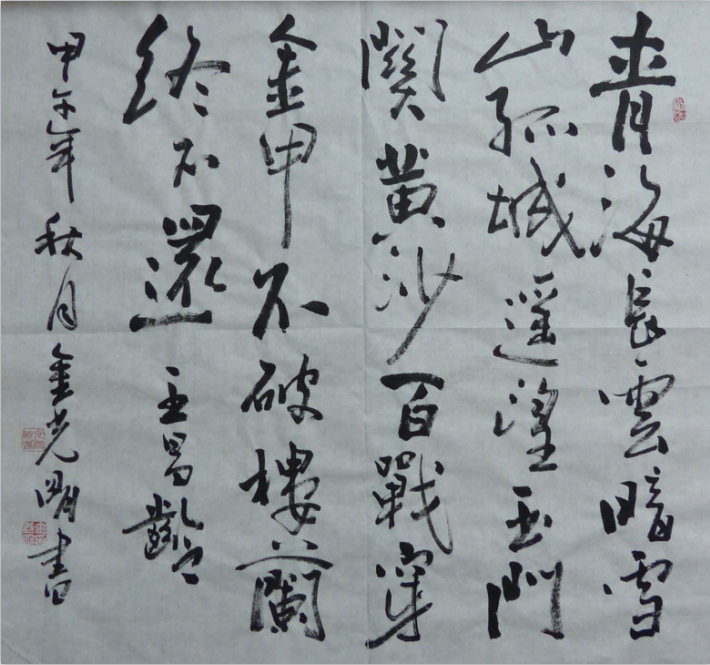 青海長雲暗雪
山孤城遥望玉門
關黄沙百戰穿
金甲不破樓蘭
終不還 王昌齡
甲午年秋月金光明書